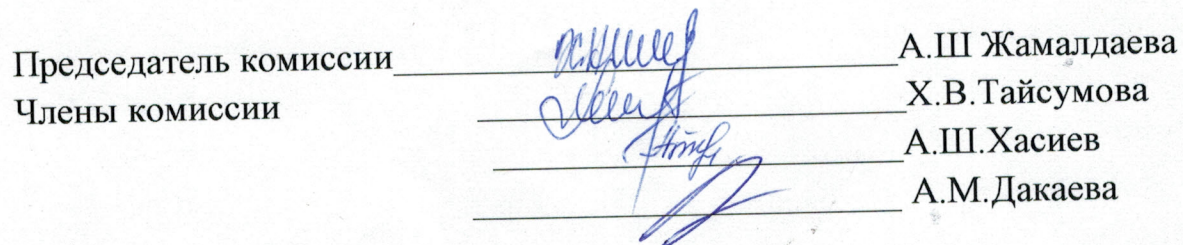 Председатель комиссии А.Ш Жамалдаева
Члены комиссии Х.В.Тайсумова
А.Ш.Хасиев
А.М.Дакаева